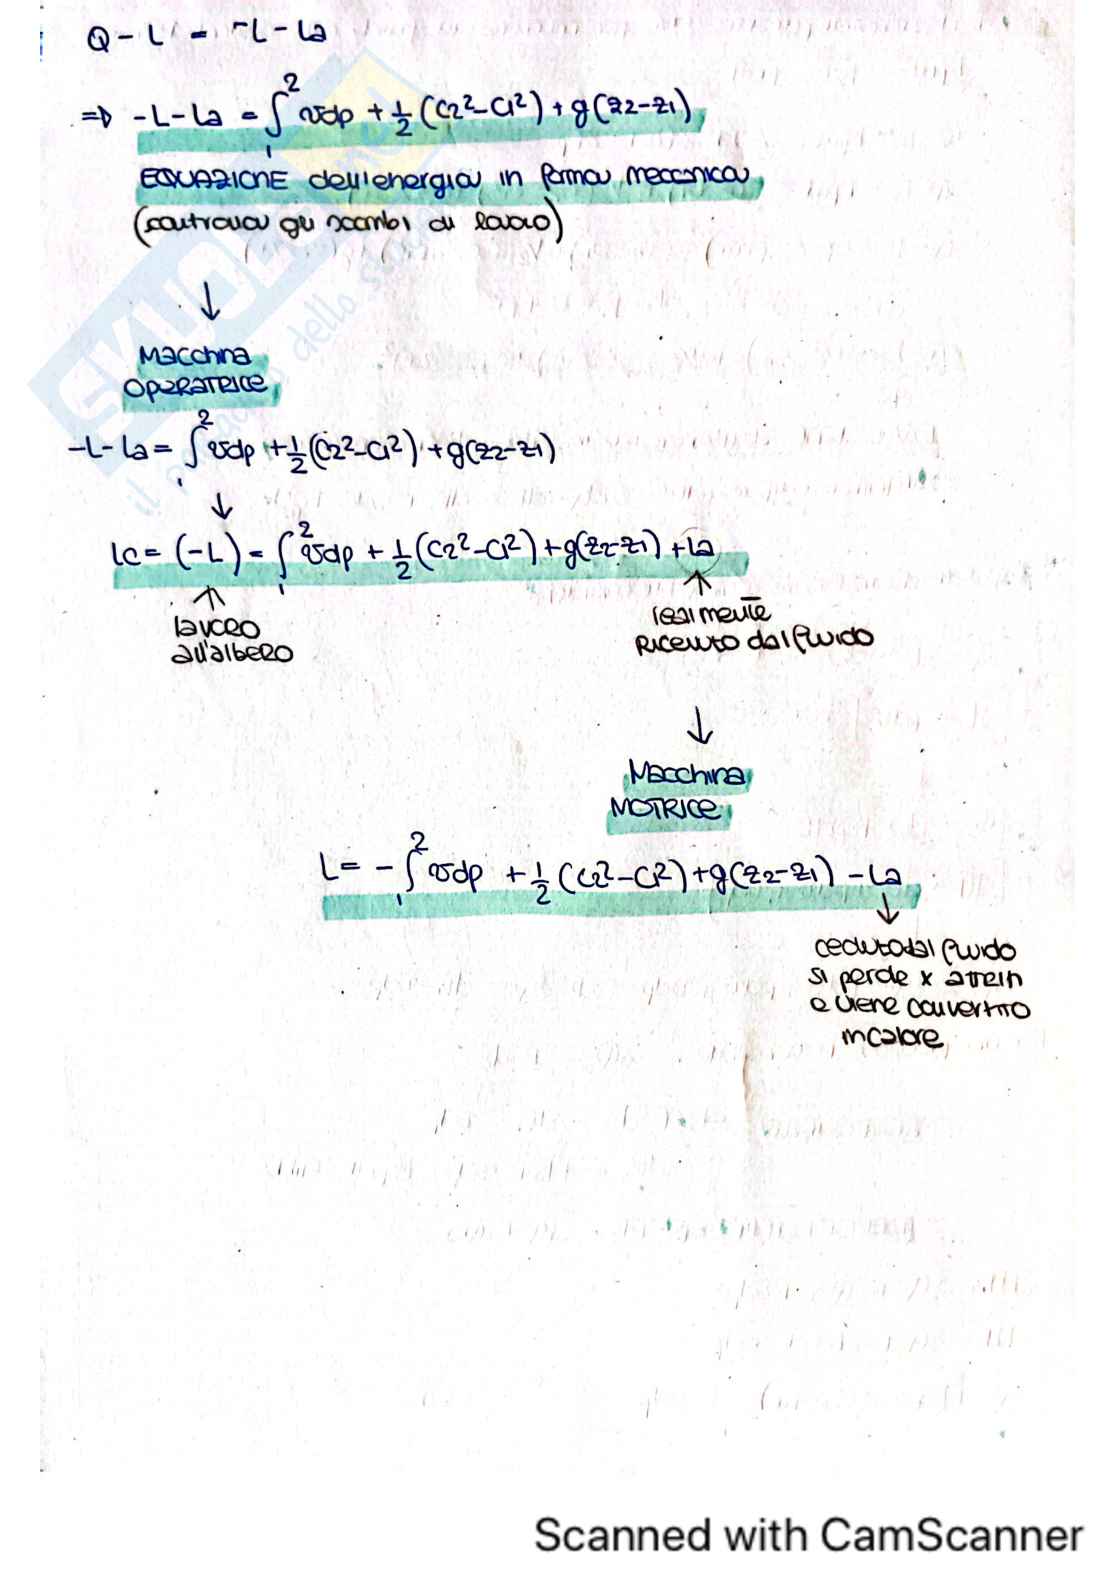 Q - L = -L - La
=> -L - La = ∫₁² vdp + 1/2 (C2² - C1²) + g(z2 - z1)
EQUAZIONE dell'energia in forma meccanica
(contiene gli scambi di lavoro)
↓
Macchina
OPERATRICE
-L - La = ∫₁² vdp + 1/2 (C2² - C1²) + g(z2 - z1)
↓
Lc = (-L) = ∫₁² vdp + 1/2 (C2² - C1²) + g(z2 - z1) + La
lavoro
all'albero
realmente
Ricevuto dal fluido
↓
Macchina
MOTRICE
L = - ∫₁² vdp + 1/2 (C2² - C1²) + g(z2 - z1) - La
ceduto dal fluido
si perde x attriti
e viene convertito
in calore
SKUOLA
il dello
Scanned with CamScanner